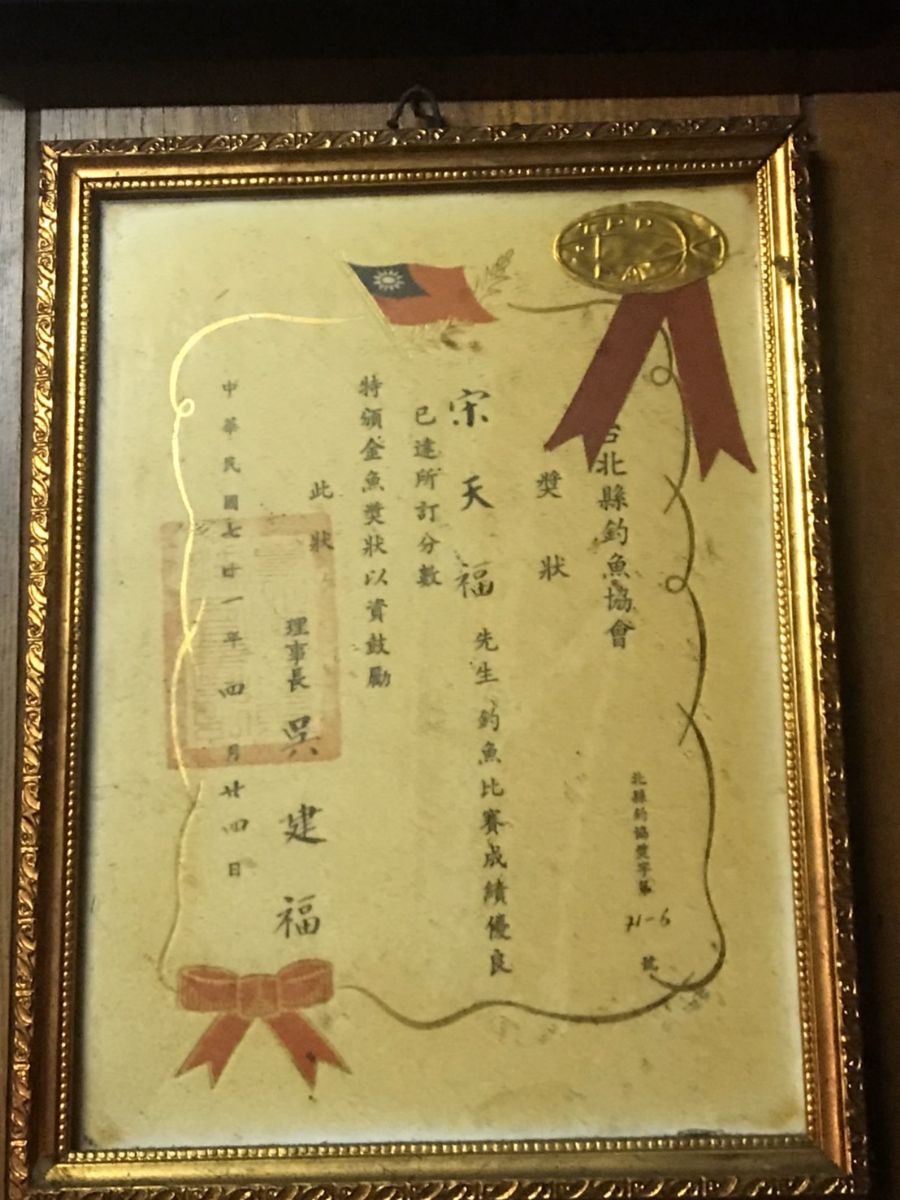 台北縣釣魚協會
獎狀
北縣釣協獎字第 71-6 號
宋天福先生釣魚比賽成績優良
已達所訂分數
特頒金魚獎狀以資鼓勵
此狀
理事長 吳建福
中華民國七十一年四月廿四日